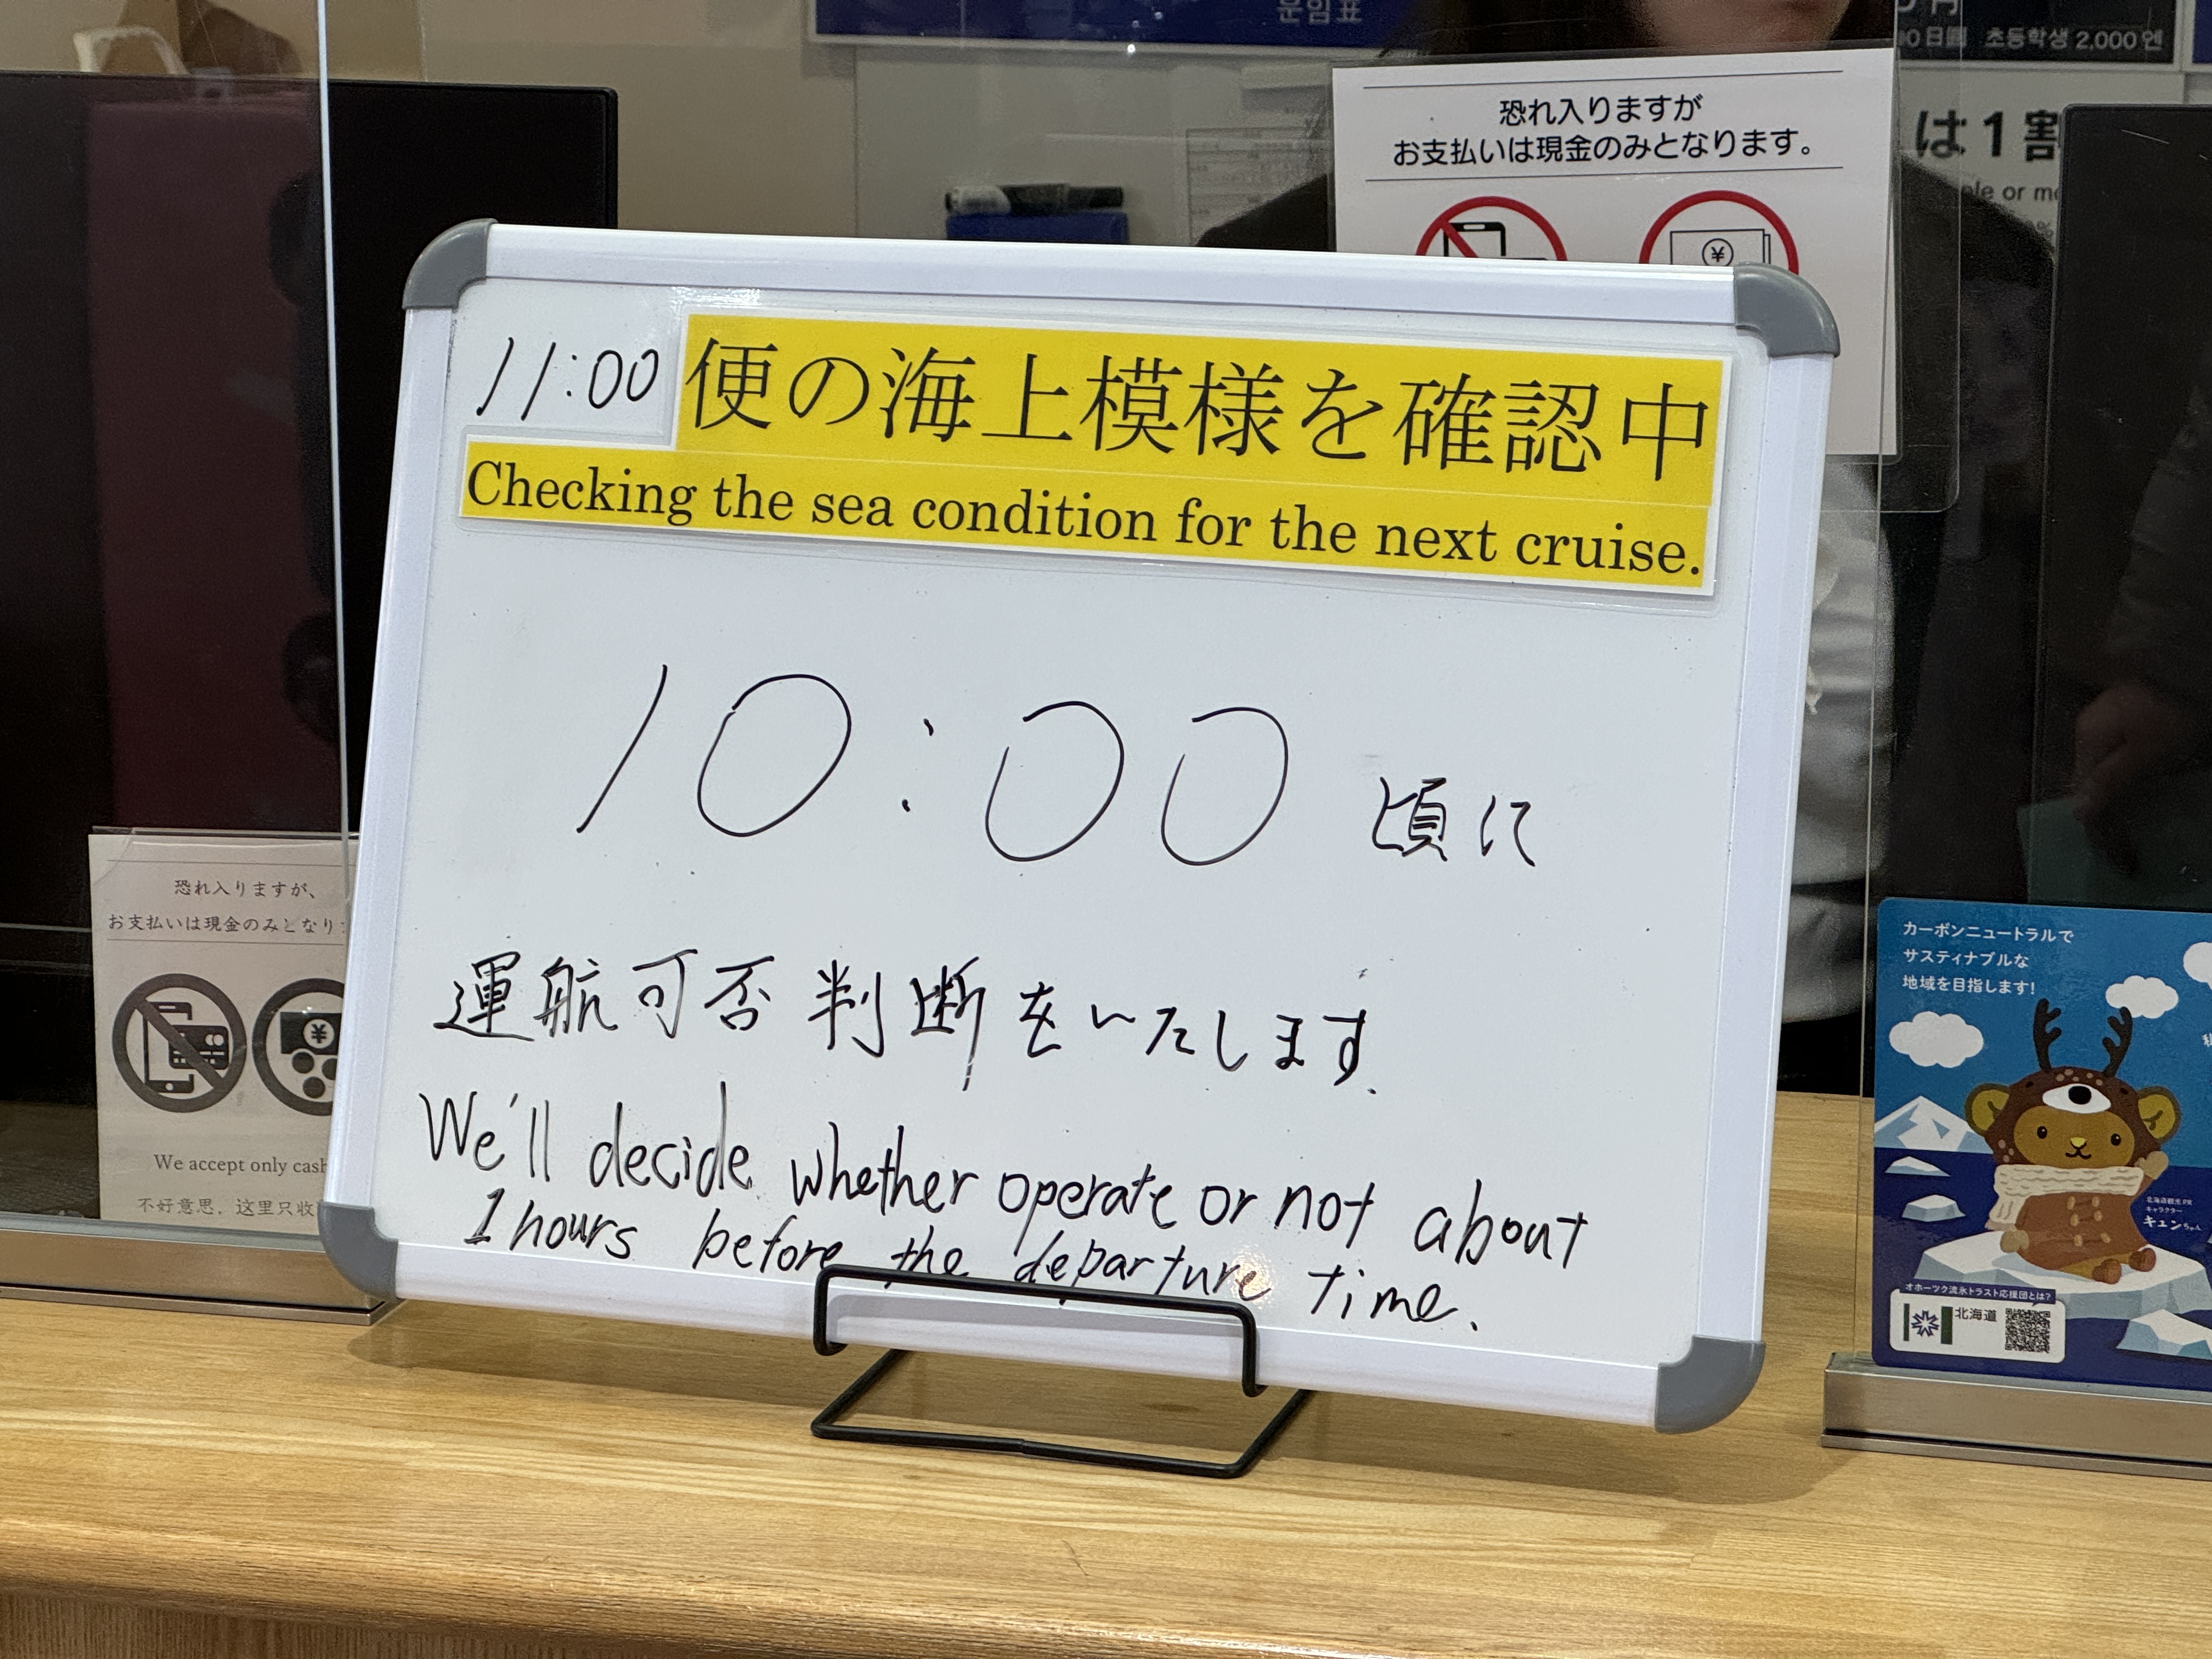 운임표
초등학생 2,000엔
恐れ入りますが
お支払いは現金のみとなります。
¥
は1割
11:00 便の海上模様を確認中
Checking the sea condition for the next cruise.
10:00 頃に
運航可否判断をいたします.
We'll decide whether operate or not about
1 hours before the departure time.
恐れ入りますが、
お支払いは現金のみとなり
¥
We accept only cash
不好意思，这里只收
カーボンニュートラルで
サスティナブルな
地域を目指します!
北海道観光PR
キャラクター
キュンちゃん
オホーツク流氷トラスト応援団とは?
北海道